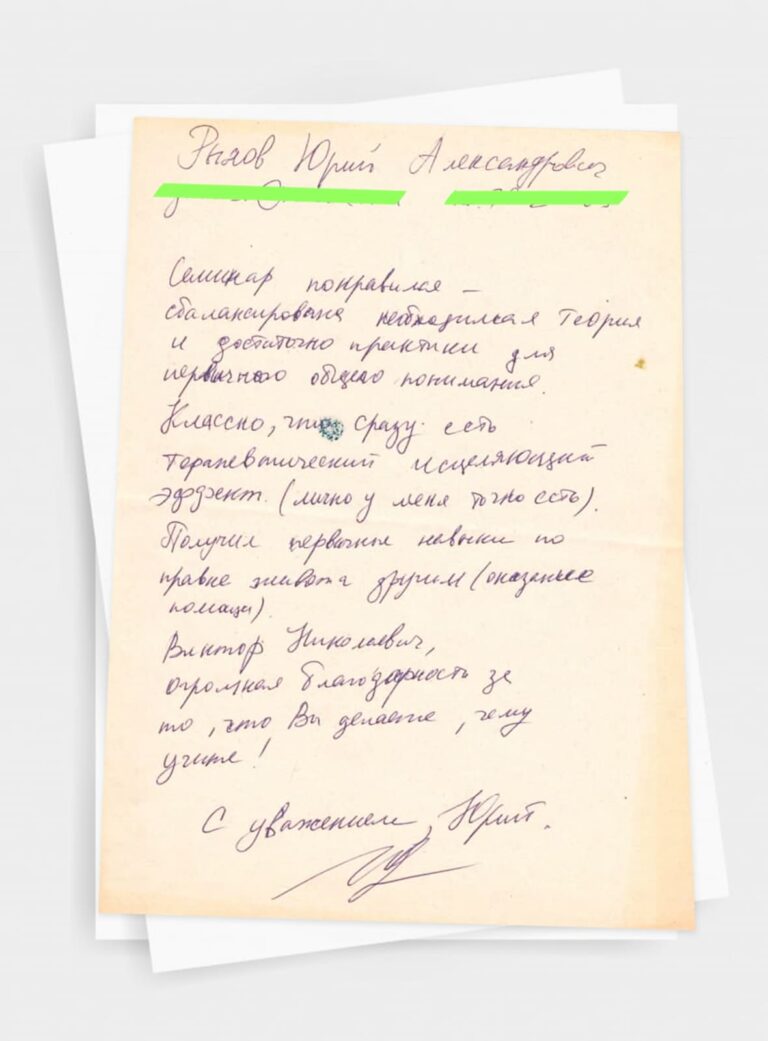 Юрий Александрович
Семинар понравился –
сбалансирована необходимая теория
и достаточно практики для
первичного общего понимания.
Классно, что сразу есть
терапевтический исцеляющий
эффект. (лично у меня точно есть).
Получил первичные навыки по
правке живота другим (оказание
помощи).
Виктор Николаевич,
огромная благодарность за
то, что Вы делаете, чему
учите!
С уважением, Юрий.